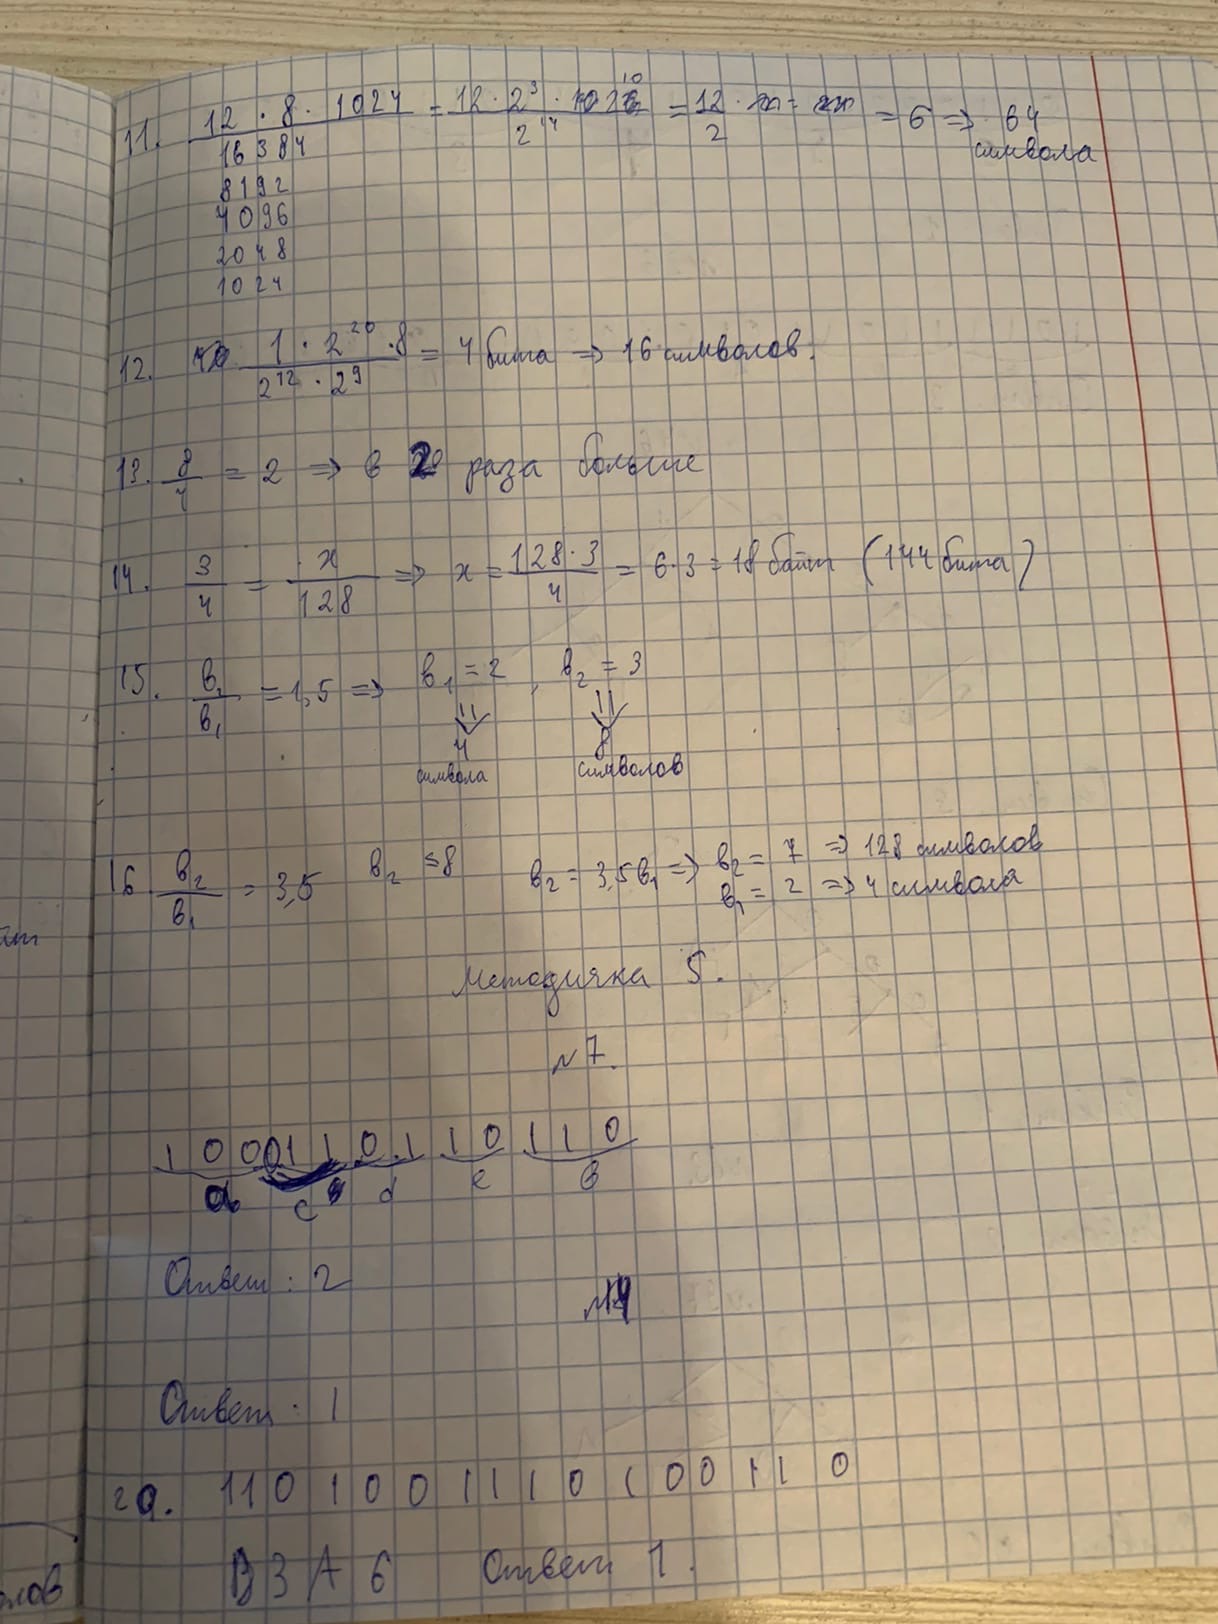 11. 12 · 8 · 1024 / 16384 = 12 · 2³ · 2¹⁰ / 2¹⁴ = 12 / 2 = 6 => 64
символа
8192
4096
2048
1024
12. 1 · 2²⁰ · 8 / 2¹² · 2⁹ = 4 бита => 16 символов.
13. 8 / 4 = 2 => в 2 раза больше
14. 3 / 4 = x / 128 => x = 128 · 3 / 4 = 6·3 = 18 байт (144 бита)
15. в₂ / в₁ = 1,5 => в₁ = 2, в₂ = 3
4 8
символа символов
16 в₂ / в₁ = 3,5 в₂ ≤ 8 в₂ = 3,5в₁ => в₂ = 7 => 128 символов
в₁ = 2 => 4 символа
Методичка 5.
№7.
1 0 0 0 1 1 0 1 1 0 1 1 0
a c d e в
Ответ: 2
Ответ: 1
20. 1 1 0 1 0 0 1 1 1 0 1 0 0 1 1 0
В 3 А 6 Ответ 1.